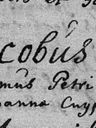 cobús
mus Petri
oanna Cuyp